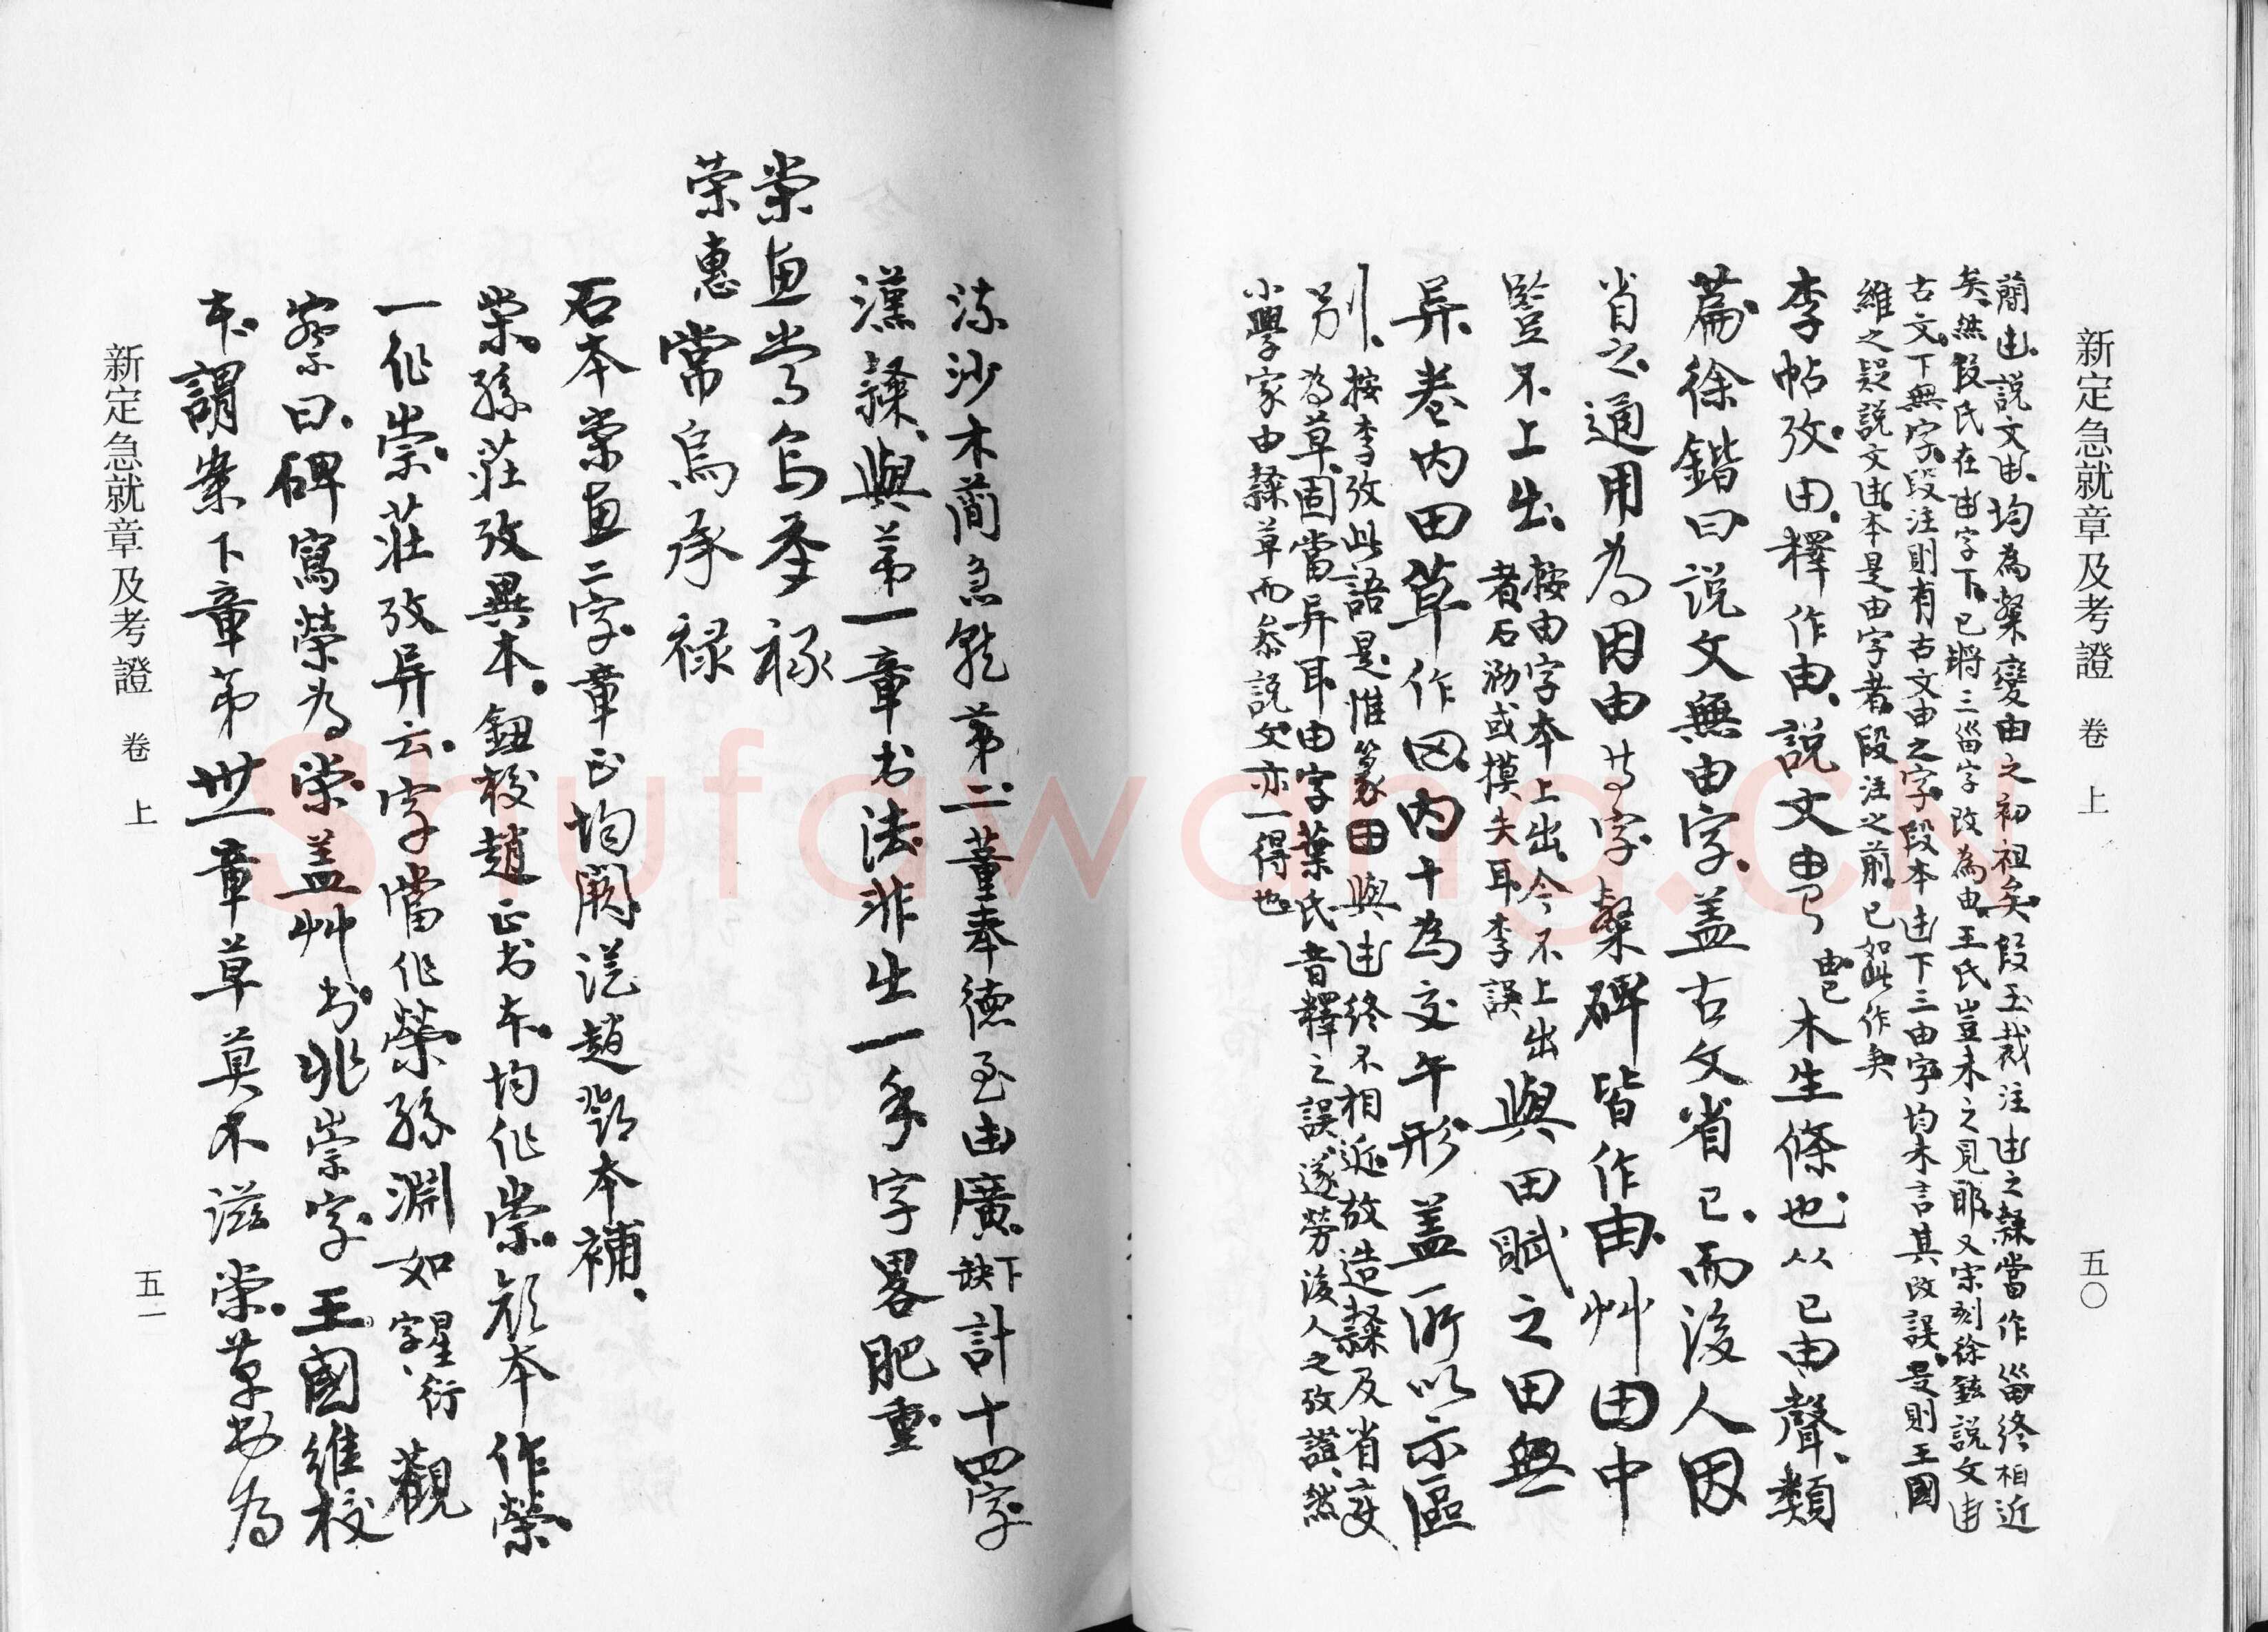 新定急就章及考證 卷上 五〇
簡甴、說文甴、均為𣜩變由之初祖矣、段玉裁注甴之隸當作甾終相近
矣、然段氏在甴字下、已將三甾字改為由、王氏豈未之見耶、又宋刻徐鉉說文甴
古文、下無字、段注則有古文由之字、段本甴下三由字均未言其改誤、是則王國
維之疑說文甴本是由字者、段注之前、已如此作矣
李帖攷由、釋作由、說文 木生條也、从 由聲、類
篇徐鍇曰說文無由字、蓋古文省 而後人因
省之、通用為因由等字隸碑皆作由、艸田中
豎不上出、按由字本上出、今不上出
者石泐或摸失耳、李誤 與田賦之田無
异、卷內田草作 內十為交午形、蓋所以示區
別、按李攷此語是惟篆 與甴終不相近、故造隸及省變
為草、固當异耳由字葉氏音釋之誤、遂勞後人之攷證、然
小學家由隸草而參說文、亦一得也、
流沙木簡急就第二章奉德至由廣、下缺計十四字
漢隸、與第一章书法非出一手字畧肥重
榮惠常烏承祿
榮惠常烏承祿
石本榮惠二字章正均闕、從趙鄧本補、
榮、孫莊攷異本、鈕校趙正书本、均作崇、顏本作榮
一作崇、莊攷异云、字當作榮孫淵如字星衍觀
察曰、碑寫榮為榮蓋艸书、非崇字、王國維校
本、謂案下章第卅一章草莫不滋榮、草书為
新定急就章及考證 卷上 五一
Shufawang.CN